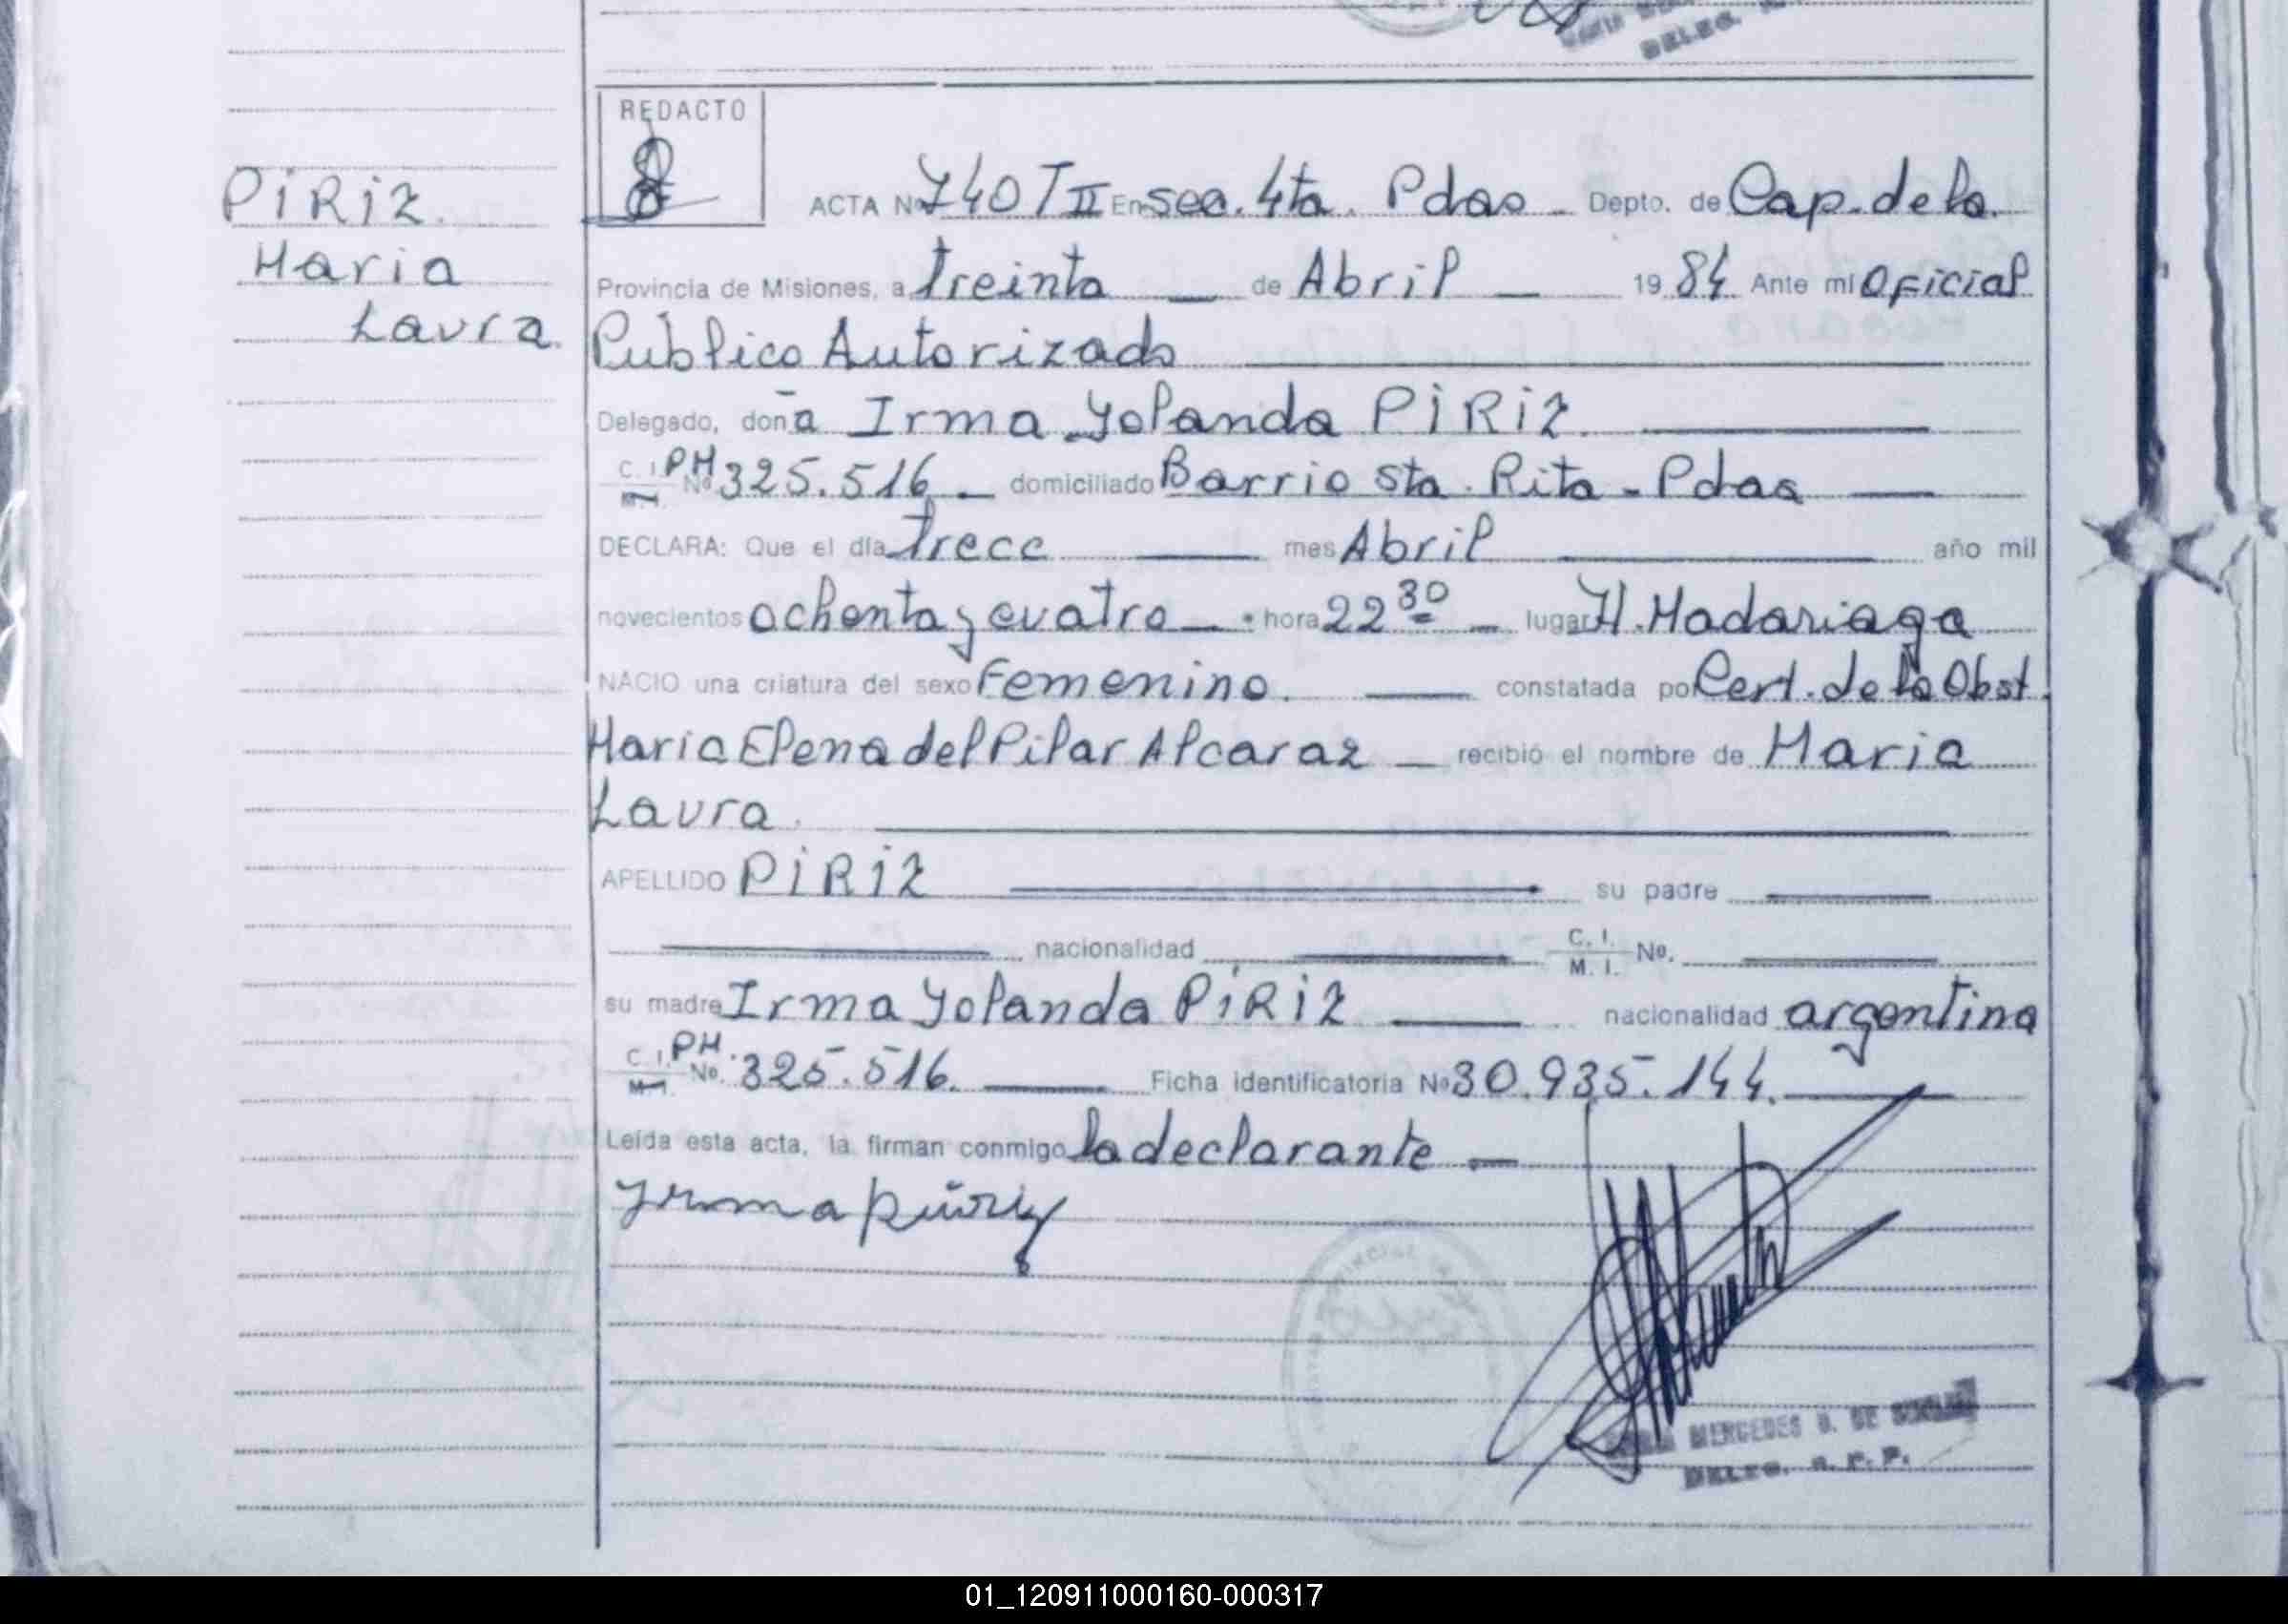 DELEG.
REDACTO
PIRIZ
Maria
Laura.
ACTA Nº 740 T II En sec. 4ta. Pdas - Depto. de Cap. de la.
Provincia de Misiones, a treinta de Abril 1984 Ante mi Oficial
Público Autorizado
Delegado, doña Irma Yolanda PIRIZ.
C. I. PH Nº 325.516 domiciliado Barrio Sta. Rita - Pdas
DECLARA: Que el día trece mes Abril año mil
novecientos ochenta y cuatro hora 22 30 lugar H. Madariaga
NACIO una criatura del sexo Femenino. constatada por Cert. de la Obst.
Maria Elena del Pilar Alcaraz recibió el nombre de Maria
Laura.
APELLIDO PIRIZ su padre
nacionalidad C. I. M. I. No.
su madre Irma Yolanda PIRIZ nacionalidad argentina
C. I. PH. No. 325.516. Ficha identificatoria Nº 30.935.144.
Leída esta acta, la firman conmigo la declarante
Irma Piriz
MERCEDES DE
DELEG. R. P. P.
01_120911000160-000317